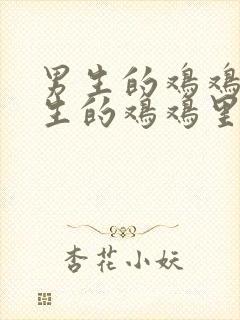 男生的鸡鸡
生的鸡鸡里
杏花小妖